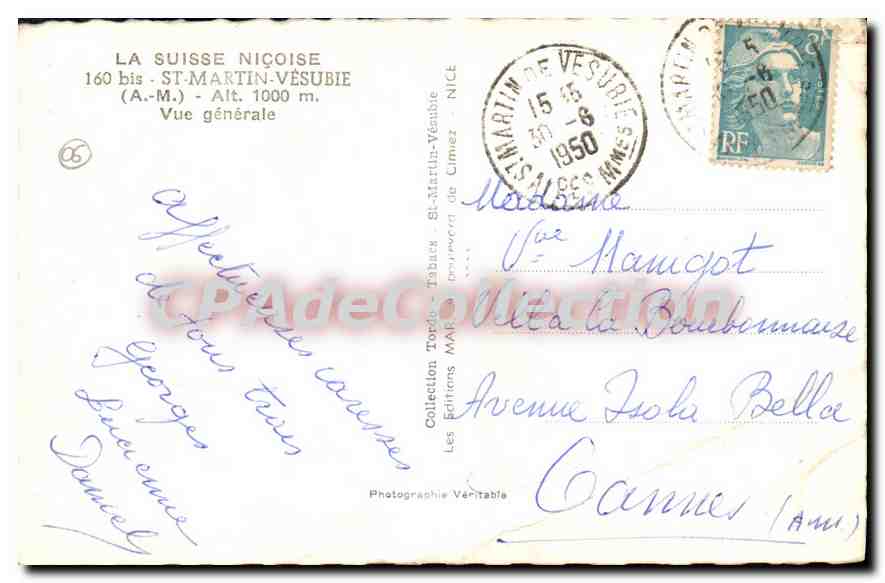 LA SUISSE NIÇOISE
160 bis - ST-MARTIN-VÉSUBIE
(A.-M.) - Alt. 1000 m.
Vue générale
06
Affectueuses caresses
de tous trois
Georges
Lucienne
Daniel
Photographie Véritable
Collection Tordo - Tabacs - St-Martin-Vésubie
Les Editions MAR boulevard de Cimiez - NICE
ST MARTIN DE VÉSUBIE
15 45
30 -6
1950
ALPES MMES
MARTIN
5
-6
1950
RF
Madame
Vve Manigot
Villa la Bourbonnaise
Avenue Isola Bella
Cannes (A.M.)
CPAdeCollection